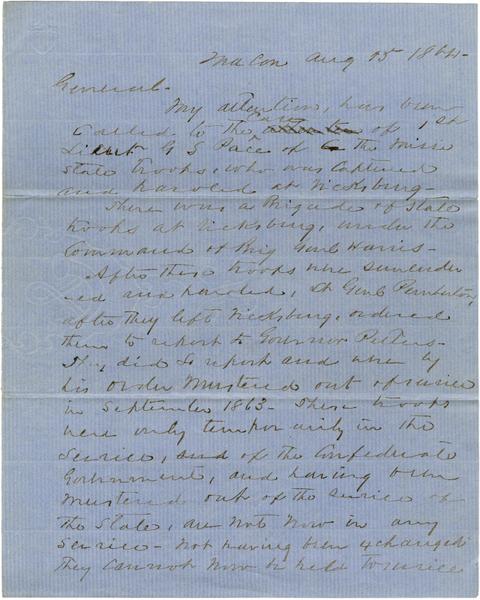 Macon Aug 15 1864-
General-
My attention, has been
Called to the Case of 1st
Lieut G S Pace of the Missi
State troops, who was Captured
and paroled at Vicksburg-
There was a Brigade of State
troops at Vicksburg, under the
Command of Brig Genl Harris-
After these troops were surender
-ed and paroled, Lt Genl Pemberton,
after they left Vicksburg, ordered
them to report to Governor Pettus-
They did so report and were by
his order Mustered out of service
in September 1863- These troops
were only temporarily in the
Service, and of the Confederate
Government, and having been
Mustered out of the service of
the State, are not now in any
Service- Not having been exchanged
they Cannot now be held to service